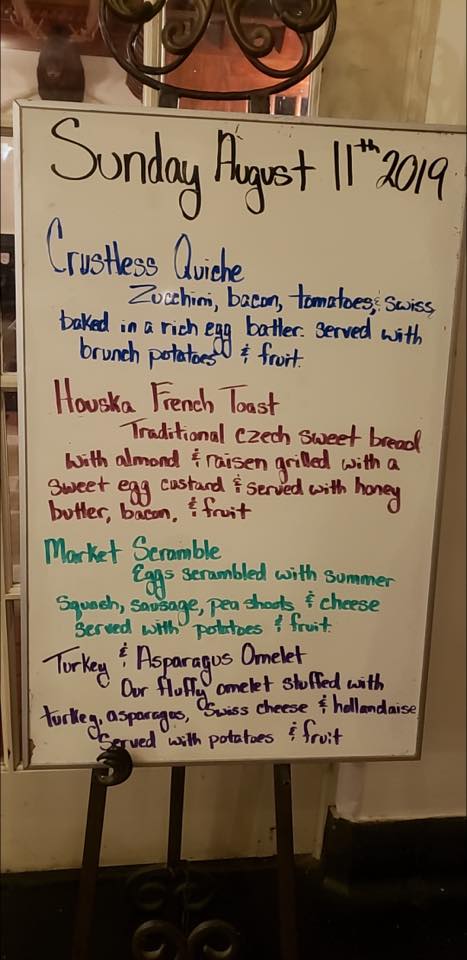 Sunday August 11th 2019
Crustless Quiche
Zucchini, bacon, tomatoes, & swiss,
baked in a rich egg batter. served with
brunch potatoes & fruit.
Houska French Toast
Traditional czech sweet bread
with almond & raisen grilled with a
sweet egg custard & served with honey
butter, bacon, & fruit
Market Scramble
Eggs scrambled with summer
squash, sausage, pea shoots & cheese
served with potatoes & fruit.
Turkey & Asparagus Omelet
Our fluffy omelet stuffed with
turkey, asparagus, swiss cheese & hollandaise
Served with potatoes & fruit